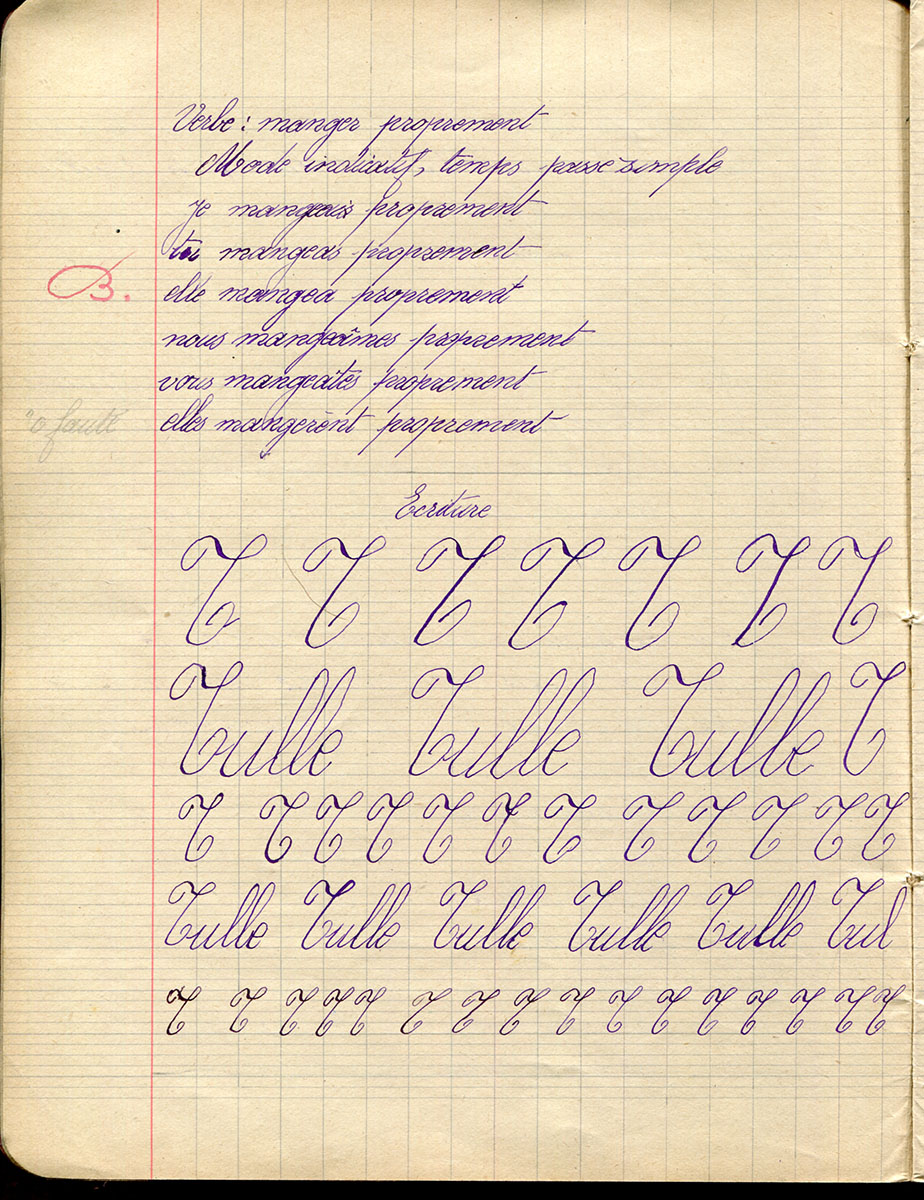 Verbe : manger proprement
Mode indicatif, temps passé simple
je mangeais proprement
tu mangeas proprement
B.
elle mangea proprement
nous mangeâmes proprement
vous mangeâtes proprement
0 faute
elles mangerènt proprement
Ecriture
T T T T T T T
Tulle Tulle Tulle T
T T T T T T T T T T T T
Tulle Tulle Tulle Tulle Tulle Tul
T T T T T T T T T T T T T T T T